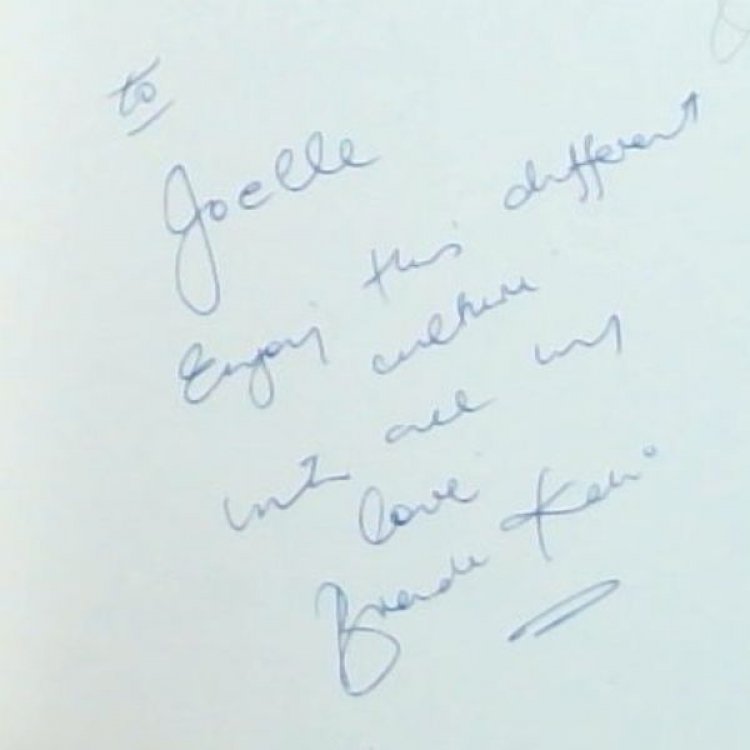 to
Joelle
Enjoy this different
culture
with all my
love
Brenda